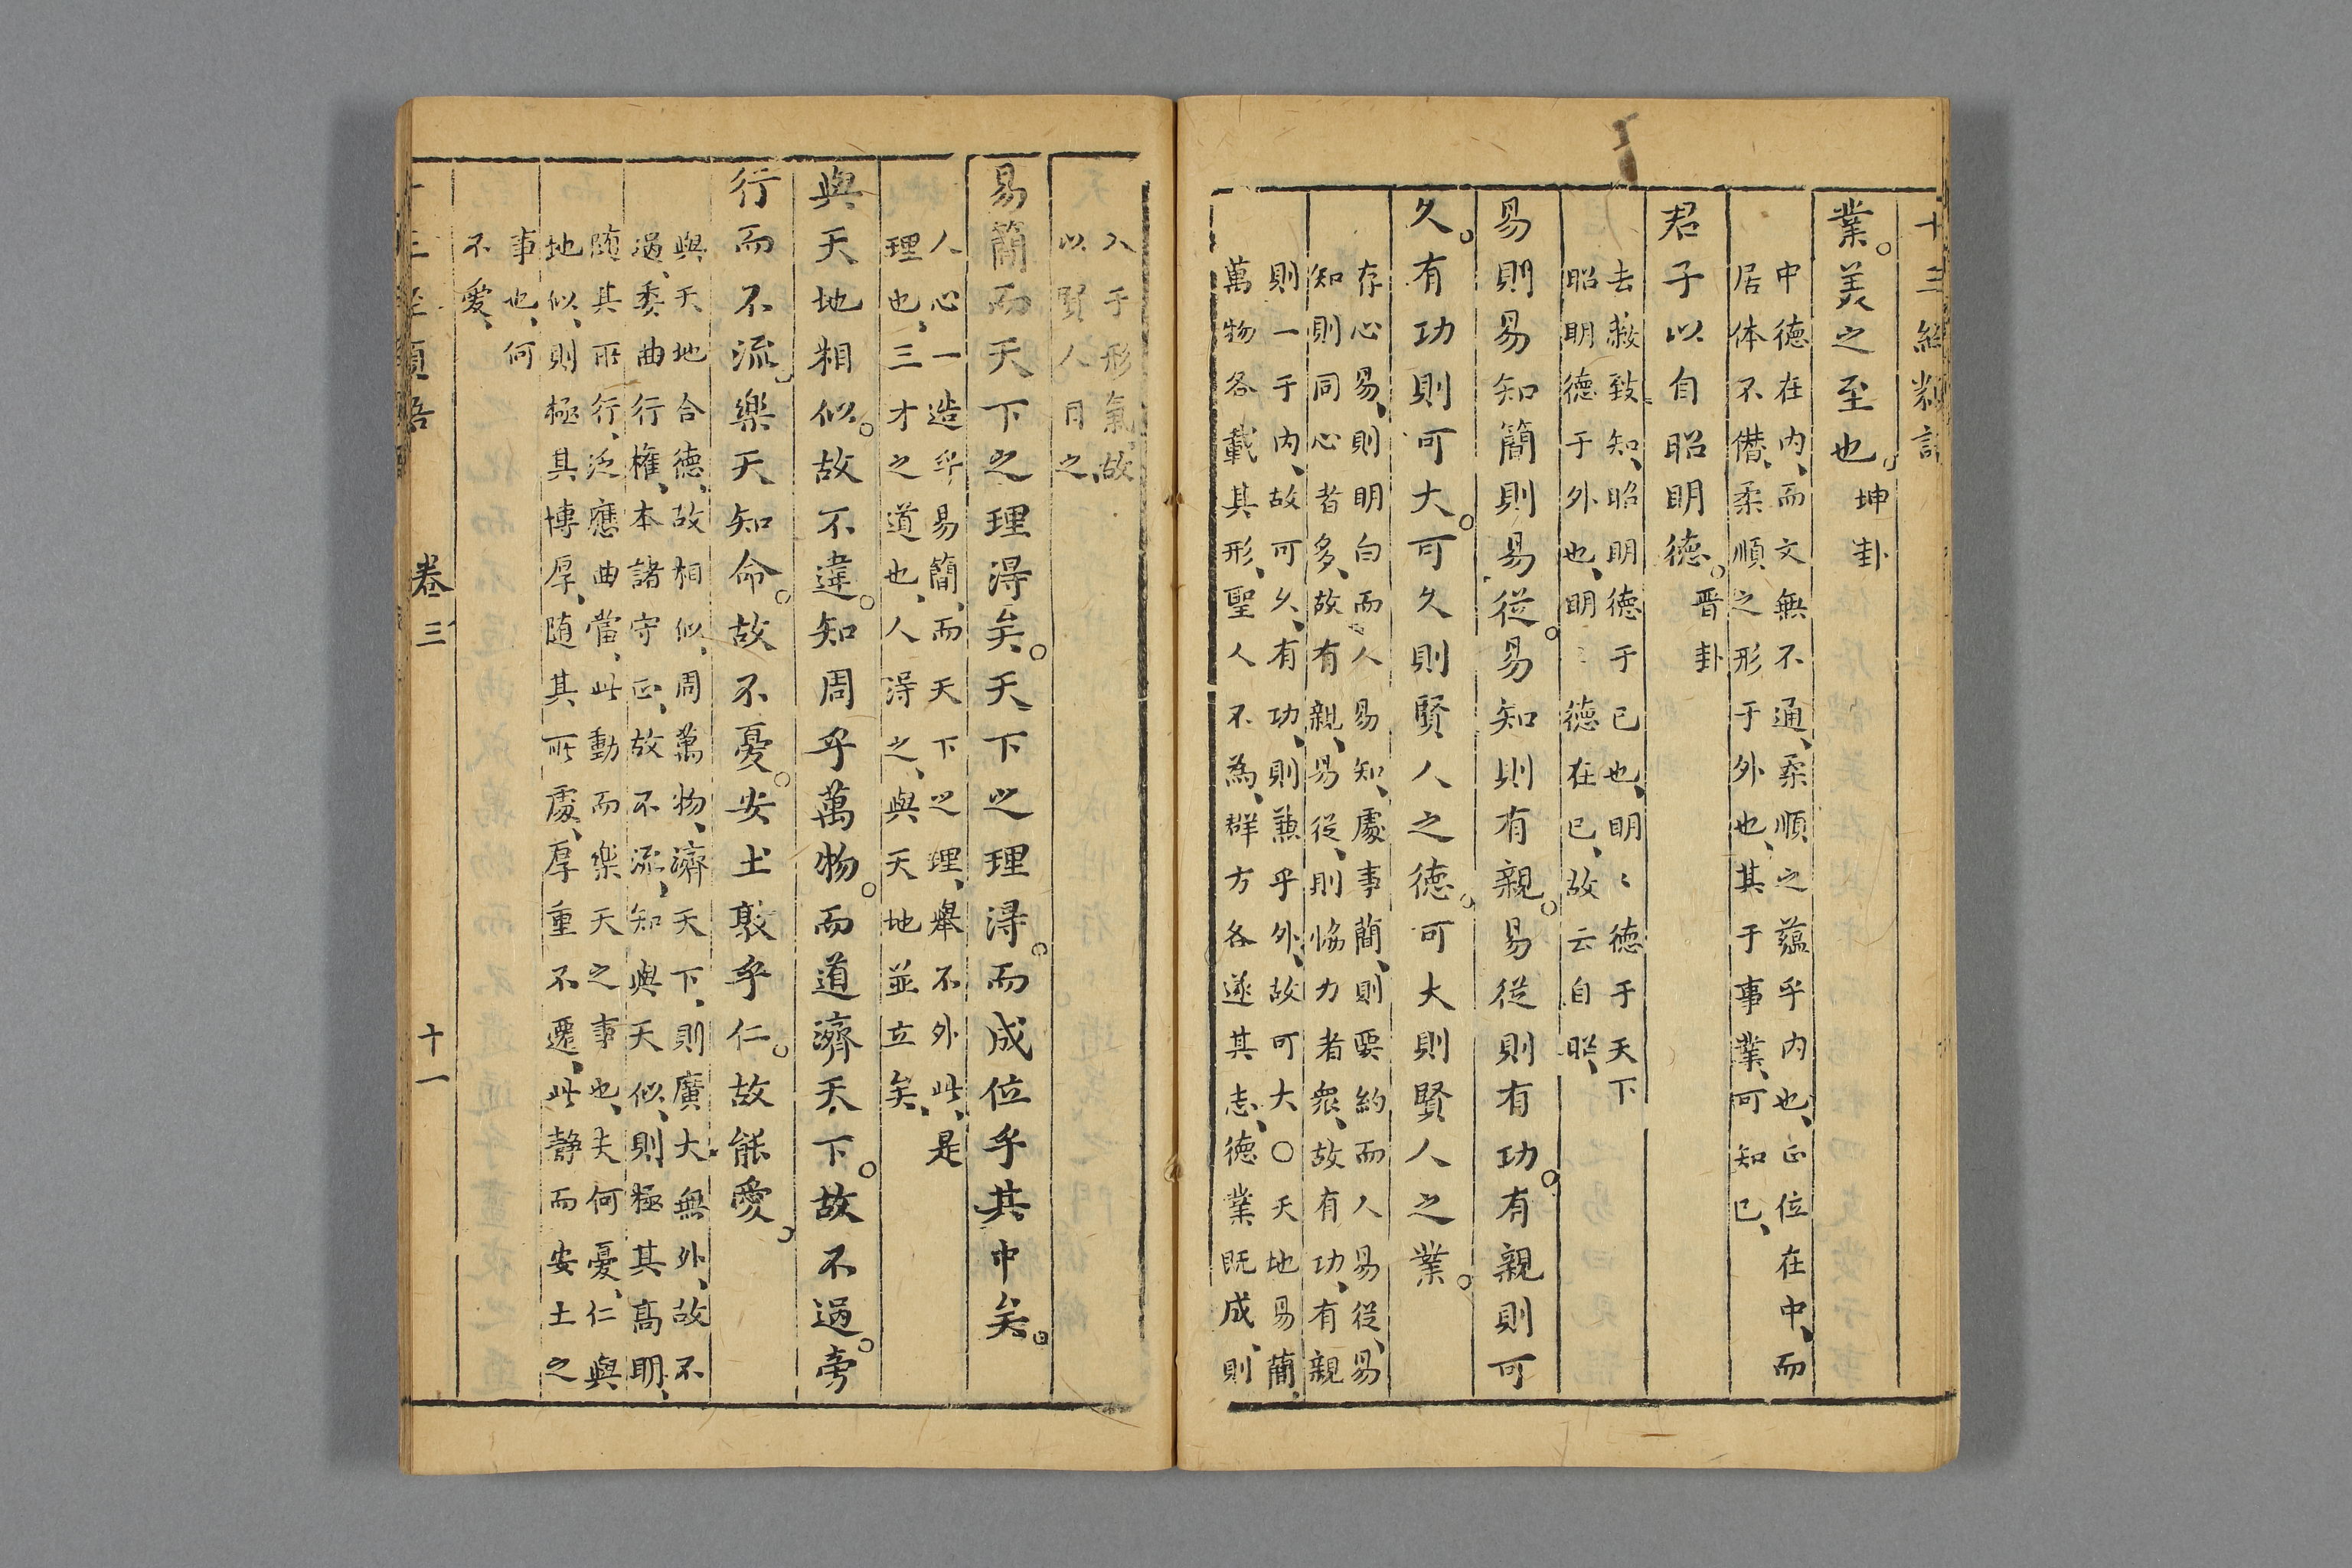 業。美之至也。坤卦
中德在内、而文無不通、柔順之蘊乎内也、正位在中、而
居体不僭、柔順之形于外也、其于事業、可知已、
君子以自昭明德。晋卦
去蔽致知、昭明德于已也、明〻德于天下
昭明德于外也、明〻德在已、故云自昭、
易則易知簡則易從。易知則有親。易從則有功。有親則可
久。有功則可大。可久則賢人之德。可大則賢人之業。
存心易、則明白而人易知、處事簡、則要約而人易從、易
知則同心者多、故有親、易從、則恊力者衆、故有功、有親
則一于内、故可久、有功、則兼乎外、故可大〇天地易簡、
萬物各載其形、聖人不為、群方各遂其志、德業既成、則
入于形氣、故
以賢人目之、
易簡而天下之理得矣。天下之理得。而成位乎其中矣。
人心一造乎易簡、而天下之理、舉不外此、是
理也、三才之道也、人得之、與天地並立矣、
與天地相似。故不違。知周乎萬物。而道濟天下。故不過。旁
行而不流。樂天知命。故不憂。安土敦乎仁。故能愛。
與天地合德、故相似、周萬物、濟天下、則廣大無外、故不
過、委曲行權、本諸守正、故不流、知與天似、則極其高明、
随其所行、泛應曲當、此動而樂天之事也、夫何憂、仁與
地似、則極其博厚、随其所處、厚重不遷、此静而安土之
事也、何
不愛、
卷三
十一